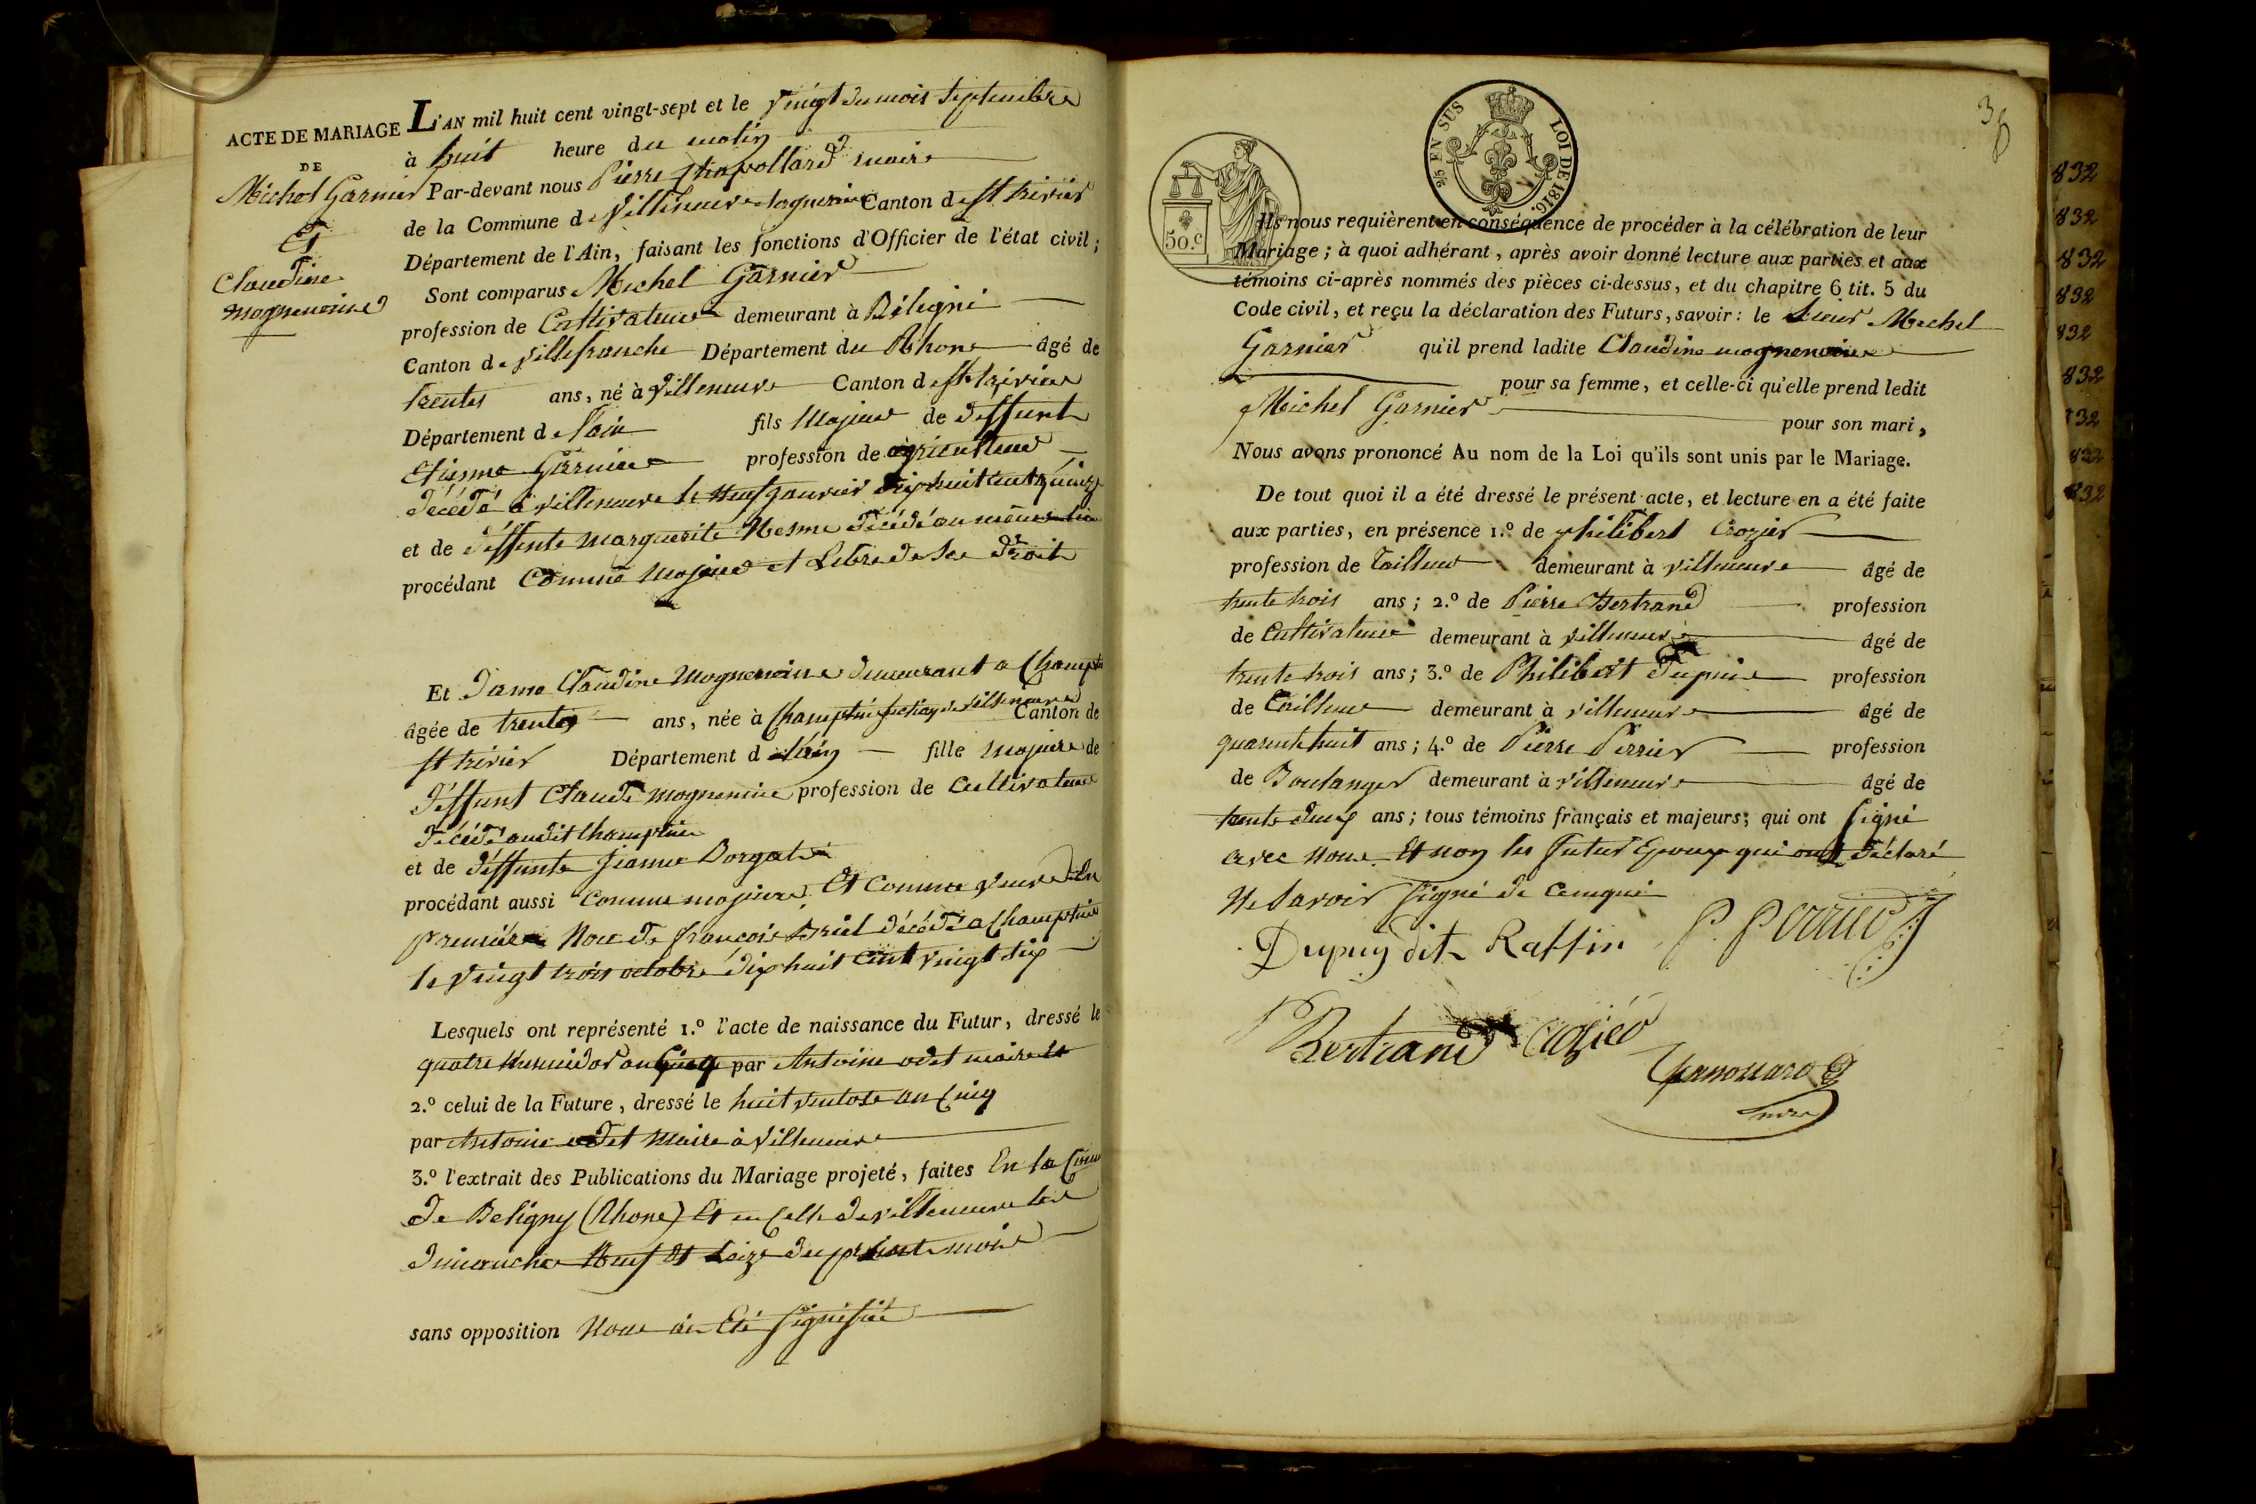 ACTE DE MARIAGE
DE
Michel Garnier
Et
Claudine
mognenoise
L'AN mil huit cent vingt-sept et le vingt du mois septembre
à huit heure du matin
Par-devant nous Pierre maire
de la Commune de Villeneuve Canton de st trivier
Département de l'Ain, faisant les fonctions d'Officier de l'état civil ;
Sont comparus Michel Garnier
profession de Cultivateur demeurant à Béligni
Canton de villefranche Département du Rhone âgé de
trentes ans, né à villeneuve Canton de st trivier
Département de l'ain fils Majeur de deffunt
Etienne Garnier profession de agriculteur
décédé à villeneuve le neuf janvier dix huit cent quinze
et de deffunte Marguerite Nesme décédé au même lieu
procédant Comme Majeur et Libre de ses droits
Et Dame Claudine Mognenoise demeurant a
âgée de trentes ans, née à de villeneuve Canton de
st trivier Département de l'ain fille Majeure de
deffunt Claude mognenoise profession de Cultivateur
décédé audit
et de deffunte Jeanne
procédant aussi Comme majeure Et Comme veuve En
première Noce de françois décédé a
le vingt trois octobre dix huit cent vingt six
Lesquels ont représenté 1.º l'acte de naissance du Futur, dressé le
quatre an Cinq par Antoine odet maire et
2.º celui de la Future, dressé le huit ventose an Cinq
par Antoine odet Maire à villeneuve
3.º l'extrait des Publications du Mariage projeté, faites En la
de Beligny (Rhone) Et en Celle de villeneuve les
dimanches Neuf Et seize du présent mois
sans opposition Nous ai Eté signifié
38
2/5 EN SUS
LOI DE 1816.
50.c
Ils nous requièrent en conséquence de procéder à la célébration de leur
Mariage ; à quoi adhérant, après avoir donné lecture aux parties et aux
témoins ci-après nommés des pièces ci-dessus, et du chapitre 6 tit. 5 du
Code civil, et reçu la déclaration des Futurs, savoir : le sieur Michel
Garnier qu'il prend ladite Claudine mognenoise
pour sa femme, et celle-ci qu'elle prend ledit
Michel Garnier
pour son mari,
Nous avons prononcé Au nom de la Loi qu'ils sont unis par le Mariage.
De tout quoi il a été dressé le présent acte, et lecture en a été faite
aux parties, en présence 1.º de philibert Crozier
profession de Tailleur demeurant à villeneuve âgé de
trente trois ans ; 2.º de Pierre Bertrand profession
de Cultivateur demeurant à villeneuve âgé de
trente trois ans ; 3.º de Philibert Dupuis profession
de Tailleur demeurant à villeneuve âgé de
quarente huit ans ; 4.º de Pierre Perrier profession
de Boulanger demeurant à villeneuve âgé de
trente deux ans ; tous témoins français et majeurs ; qui ont signé
avec nous Et non les futur Epoux qui ont déclaré
Ne savoir signé de
Dupuy dit Raffin P. Perrier
P Bertrand Crozier
mre
832
832
832
832
832
832
832
832
832